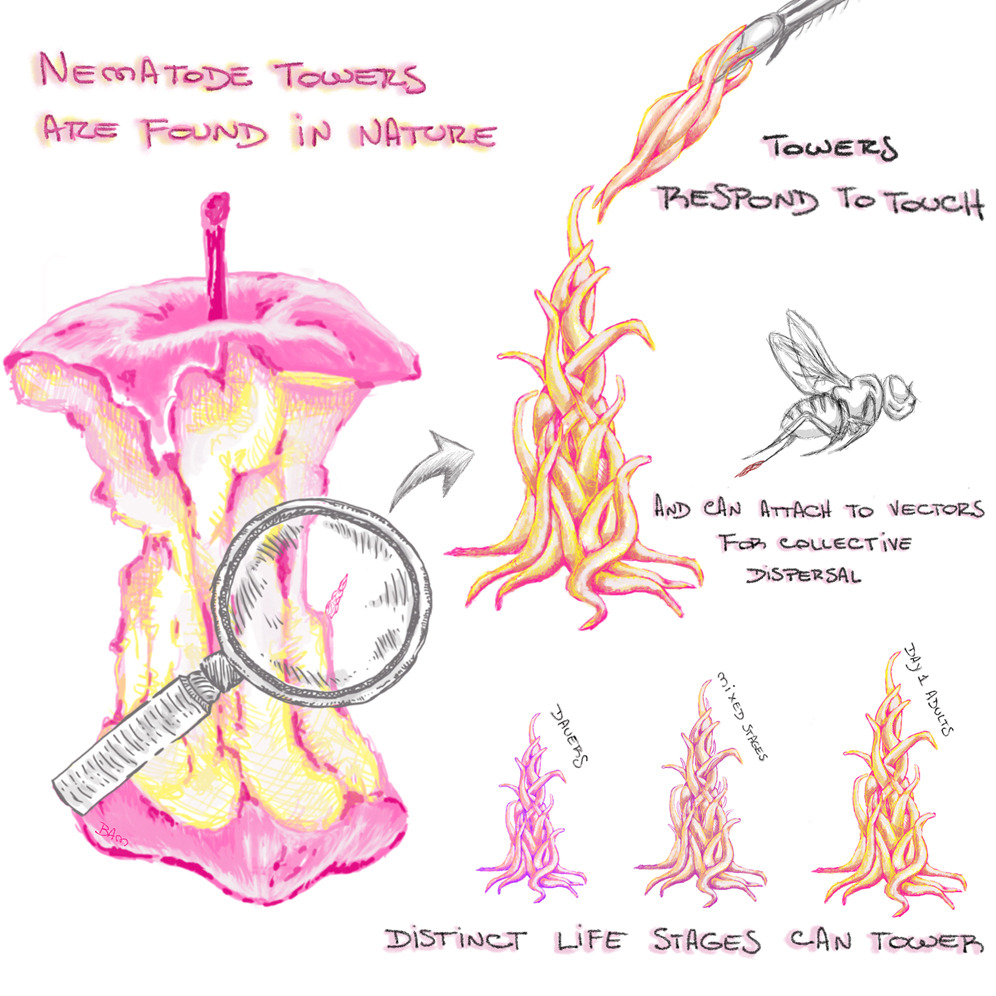 NEMATODE TOWERS
ARE FOUND IN NATURE
TOWERS
RESPOND TO TOUCH
AND CAN ATTACH TO VECTORS
FOR COLLECTIVE
DISPERSAL
DAUERS
MIXED STAGES
DAY 1 ADULTS
BAM
DISTINCT LIFE STAGES CAN TOWER